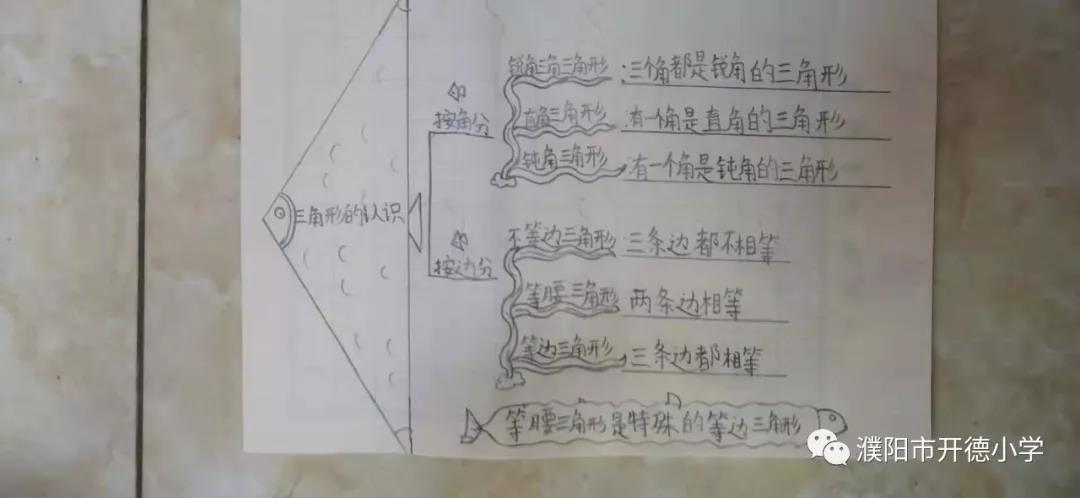 锐角三角三角形：三个角都是锐角的三角形
按角分
直角三角形：有一个角是直角的三角形
钝角三角形：有一个角是钝角的三角形
三角形的认识
不等边三角形 三条边都不相等
按边分
等腰三角形 两条边相等
等边三角形 三条边都相等
等腰三角形是特殊的等边三角形
濮阳市开德小学